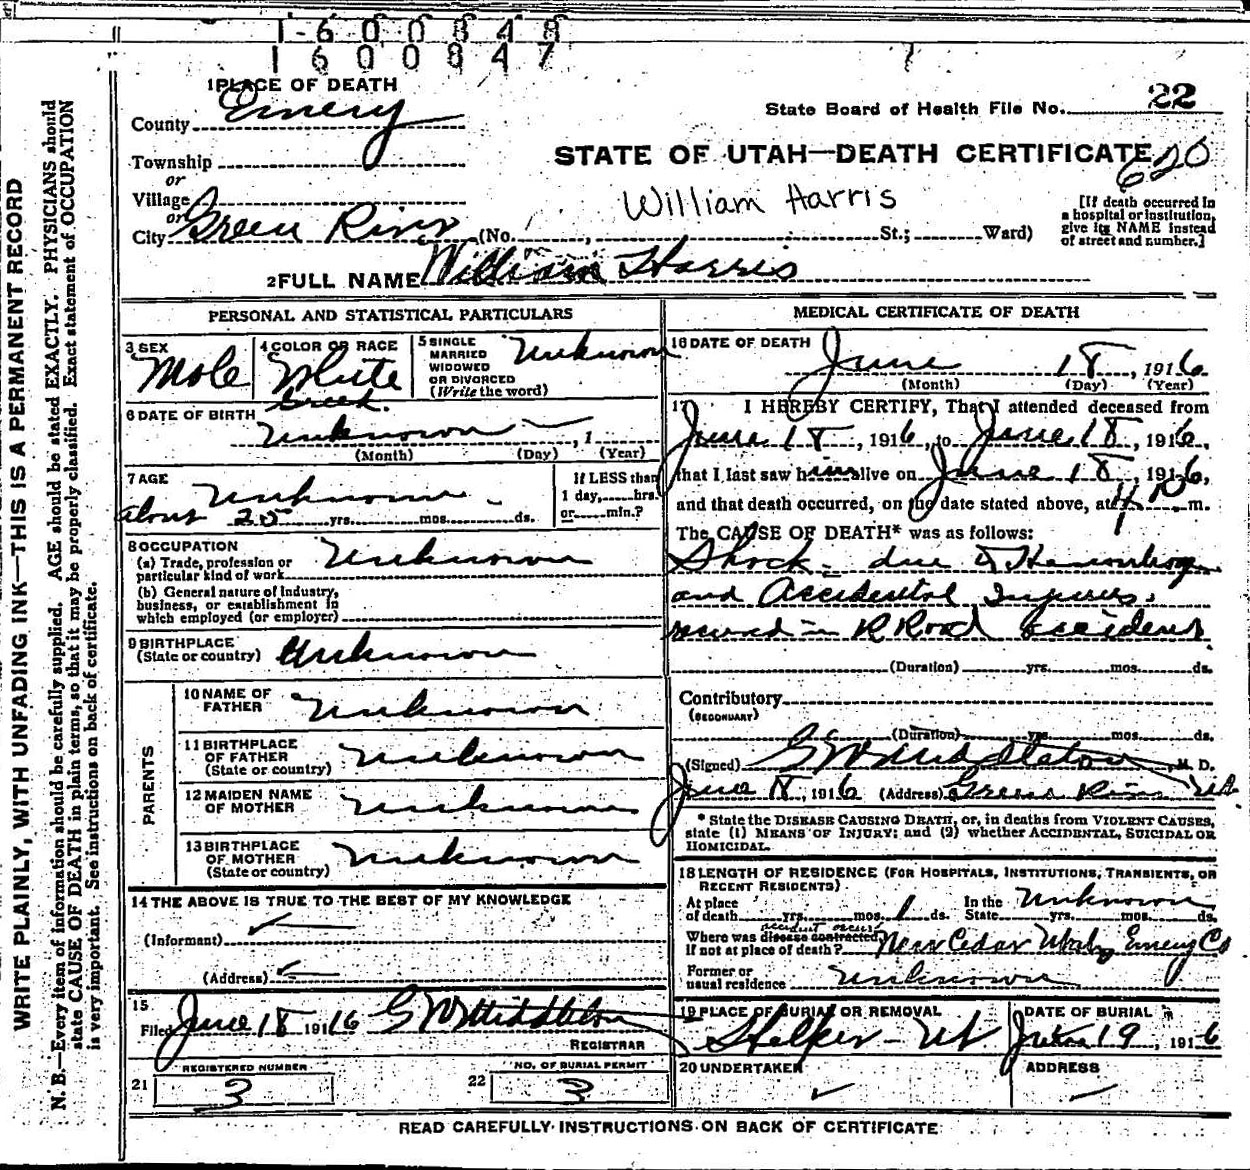 1600848
1600847
1 PLACE OF DEATH
County Emery
State Board of Health File No. 22
Township
STATE OF UTAH—DEATH CERTIFICATE 620
or
Village
William Harris
or
City Green River (No. , St.; Ward)
[If death occurred in
a hospital or institution,
give its NAME instead
of street and number.]
2 FULL NAME William Harris
PERSONAL AND STATISTICAL PARTICULARS
3 SEX
Male
4 COLOR OR RACE
White
Greek
5 SINGLE
MARRIED
WIDOWED
OR DIVORCED
(Write the word)
Unknown
6 DATE OF BIRTH
Unknown , 1
(Month) (Day) (Year)
7 AGE
Unknown
about 25 yrs. mos. ds.
If LESS than
1 day, hrs.
or min.?
8 OCCUPATION
(a) Trade, profession or
particular kind of work Unknown
(b) General nature of industry,
business, or establishment in
which employed (or employer)
9 BIRTHPLACE
(State or country) Unknown
PARENTS
10 NAME OF
FATHER Unknown
11 BIRTHPLACE
OF FATHER
(State or country) Unknown
12 MAIDEN NAME
OF MOTHER Unknown
13 BIRTHPLACE
OF MOTHER
(State or country) Unknown
14 THE ABOVE IS TRUE TO THE BEST OF MY KNOWLEDGE
(Informant)
(Address)
15
Filed June 18 1916 G W Middleton
REGISTRAR
21 REGISTERED NUMBER
3
22 NO. OF BURIAL PERMIT
3
MEDICAL CERTIFICATE OF DEATH
16 DATE OF DEATH
June 18, 1916
(Month) (Day) (Year)
17 I HEREBY CERTIFY, That I attended deceased from
June 18, 1916, to June 18, 1916,
that I last saw him alive on June 18, 1916,
and that death occurred, on the date stated above, at m.
The CAUSE OF DEATH* was as follows:
Shock - due to Hemorrhage
and Accidental Injuries
received in R Road accident
(Duration) yrs. mos. ds.
Contributory
(SECONDARY)
(Duration) yrs. mos. ds.
(Signed) G W Middleton, M. D.
June 18, 1916 (Address) Green River Ut.
* State the DISEASE CAUSING DEATH, or, in deaths from VIOLENT CAUSES,
state (1) MEANS OF INJURY; and (2) whether ACCIDENTAL, SUICIDAL OR
HOMICIDAL.
18 LENGTH OF RESIDENCE (FOR HOSPITALS, INSTITUTIONS, TRANSIENTS, OR
RECENT RESIDENTS)
At place
of death yrs. mos. 1 ds.
In the
State yrs. mos. ds. Unknown
accident occur
Where was disease contracted,
If not at place of death? Near Cedar Emery Co
Former or
usual residence Unknown
19 PLACE OF BURIAL OR REMOVAL
Helper - Ut
DATE OF BURIAL
June 19, 1916
20 UNDERTAKER
ADDRESS
READ CAREFULLY INSTRUCTIONS ON BACK OF CERTIFICATE
WRITE PLAINLY, WITH UNFADING INK—THIS IS A PERMANENT RECORD
N. B.—Every item of information should be carefully supplied. AGE should be stated EXACTLY. PHYSICIANS should
state CAUSE OF DEATH in plain terms, so that it may be properly classified. Exact statement of OCCUPATION
is very important. See instructions on back of certificate.